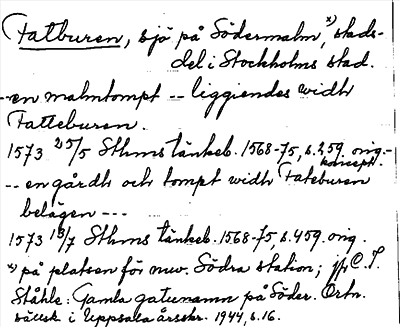 Fatburen, sjö på Södermalm, x) stads-
del i Stockholms stad.
-- en malmtompt -- liggiendes widh
Fatteburen.
1573 25/5 Sthms tänkeb. 1568-75, s. 259 orig.-
koncept.
-- en gårdh och tompt widh Fateburen
belägen ---
1573 13/7 Sthms tänkeb. 1568-75, s. 459. orig.
x) på platsen för nuv. Södra station; jfr C. I.
Ståhle: Gamla gatunamn på Söder. Ortn.
sällsk. i Uppsala årsskr. 1944, s. 16.